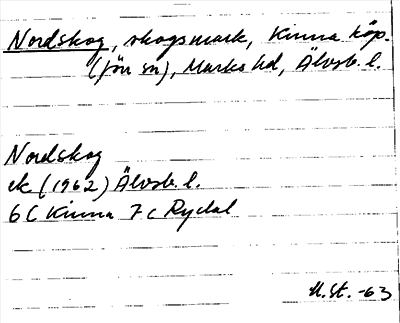 Nordskog, skogsmark, Kinna köp.
(förr sn), Marks hd, Älvsb. l.
Nordskog
ek (1962) Älvsb. l.
6 C Kinna 7 C Rydal
M. St. -63